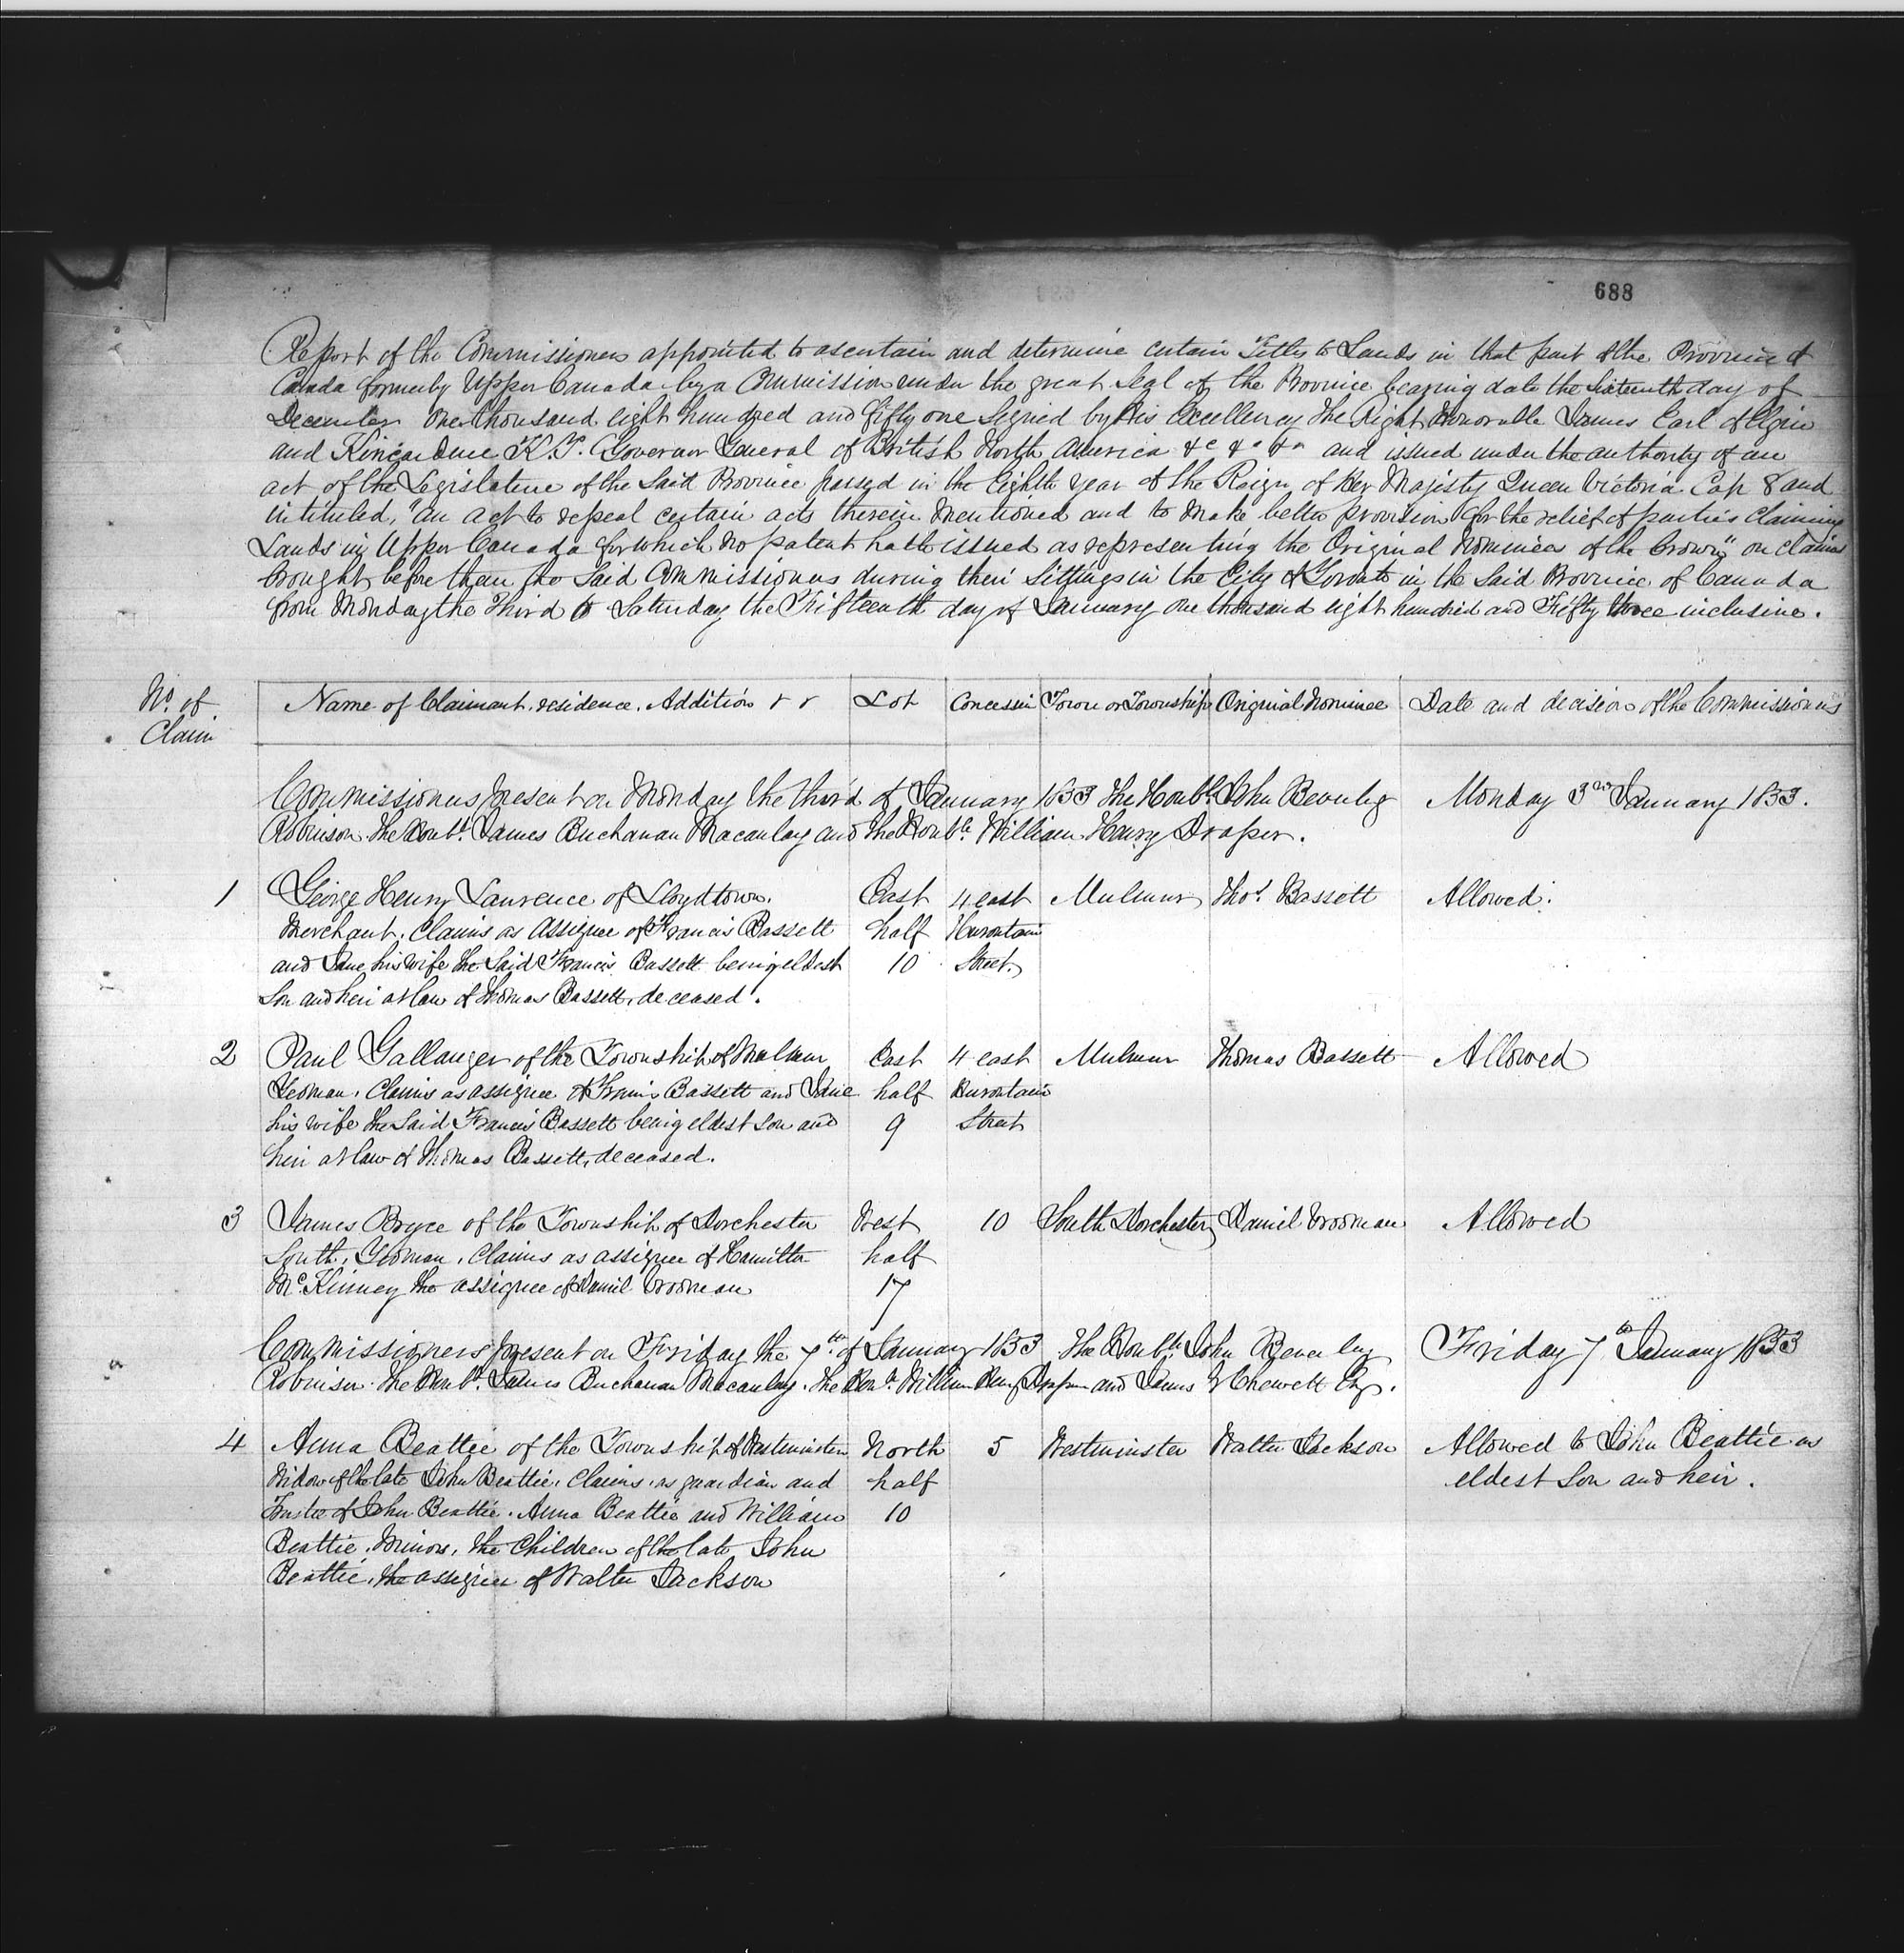 688
Report of the Commissioners appointed to ascertain and determine certain Titles to Lands in that part of the Province of
Canada formerly Upper Canada by a Commission under the great Seal of the Province bearing date the Sixteenth day of
December One thousand eight hundred and fifty one Signed by His Excellency The Right Honorable James Earl of Elgin
and Kincardine K.T. Governor General of British North America &c &c &c and issued under the authority of an
act of the Legislature of the Said Province passed in the Eighth year of the Reign of Her Majesty Queen Victoria Cap 8 and
intituled, "An act to repeal certain acts therein Mentioned and to Make better provision for the relief of parties Claiming
Lands in Upper Canada for which No patent hath issued as representing the Original Nominees of the Crown" on claims
brought before them the Said Commissioners during their Sittings in the City of Toronto in the Said Province of Canada
from Monday the Third to Saturday the Fifteenth day of January one thousand eight hundred and Fifty three inclusive.
No. of Claim
Name of Claimant. residence. Addition & & Lot Concession Town or Township Original Nominee Date and decision of the Commissioners
Commissioners present on Monday the third of January 1853 The Honble. John Beverley Monday 3rd January 1853.
Robinson. The Honble. James Buchanan Macaulay and The Honble. William Henry Draper.
1 George Henry Laurence of Lloydtown. East 4 east Mulmur Thos. Bassett Allowed.
Merchant. Claims as Assignee of Francis Bassett half Hurontario
and Jane his wife the Said Francis Bassett being eldest 10 Street.
Son and heir at law of Thomas Bassett, deceased.
2 Paul Gallauger of the Township of Mulmur East 4 east Mulmur Thomas Bassett Allowed
Yeoman. Claims as assignee of Francis Bassett and Jane half Hurontario
his wife the Said Francis Bassett being eldest Son and 9 Street
heir at law of Thomas Bassett, deceased.
3 James Bryce of the Township of Dorchester West 10 South Dorchester Daniel Vrooman Allowed
South. Yeoman. Claims as assignee of Hamilton half
McKinney the assignee of Daniel Vrooman 17
Commissioners present on Friday the 7th. of January 1853 The Honble. John Beverley Friday 7th January 1853
Robinson. The Honble. James Buchanan Macaulay. The Honble. William Henry Draper and James G Chewett Esq.
4 Anna Beattie of the Township of Westminster North 5 Westminster Walter Jackson Allowed to John Beattie as
Widow of the late John Beattie. Claims. as guardian and half eldest Son and heir.
Trustee of John Beattie. Anna Beattie and William 10
Beattie. Minors, the Children of the late John
Beattie, the assignee of Walter Jackson